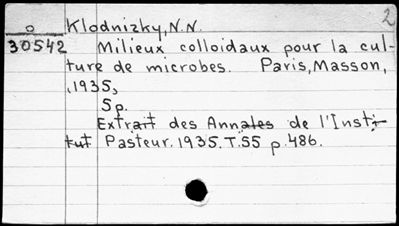 2
o Klodnizky, N.N.
30542 Milieux colloidaux pour la cul-
ture de microbes. Paris, Masson,
,1935,
5p.
Extrait des Annales de l'Insti-
tut Pasteur. 1935. T.55 p.486.